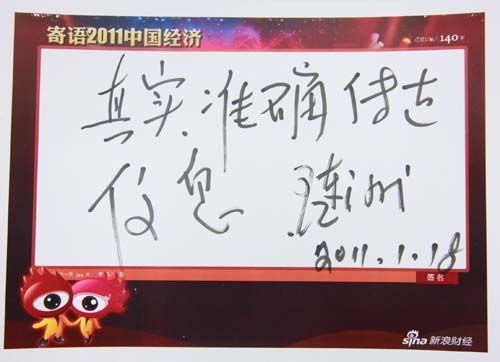 寄语2011中国经济
140字
真实.准确传达
信息
2011.1.18
签名
sina 新浪财经